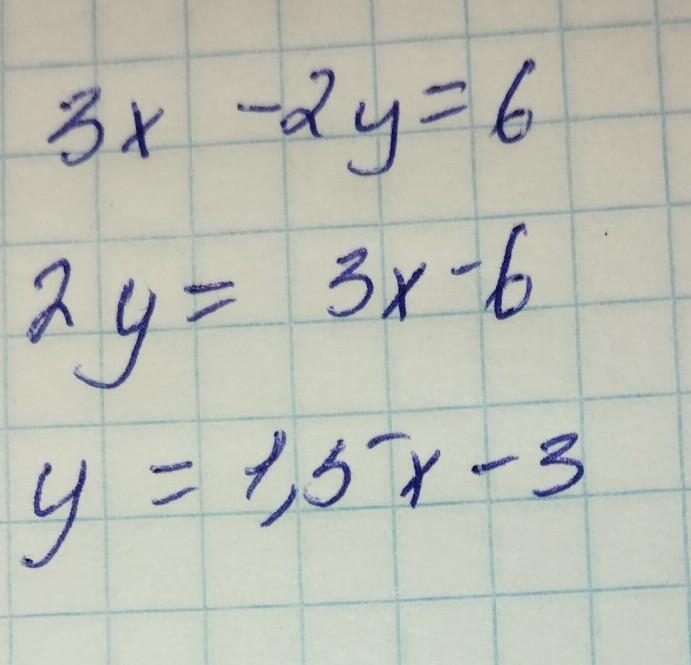 3x -2y = 6
2y = 3x - 6
y = 1,5x - 3